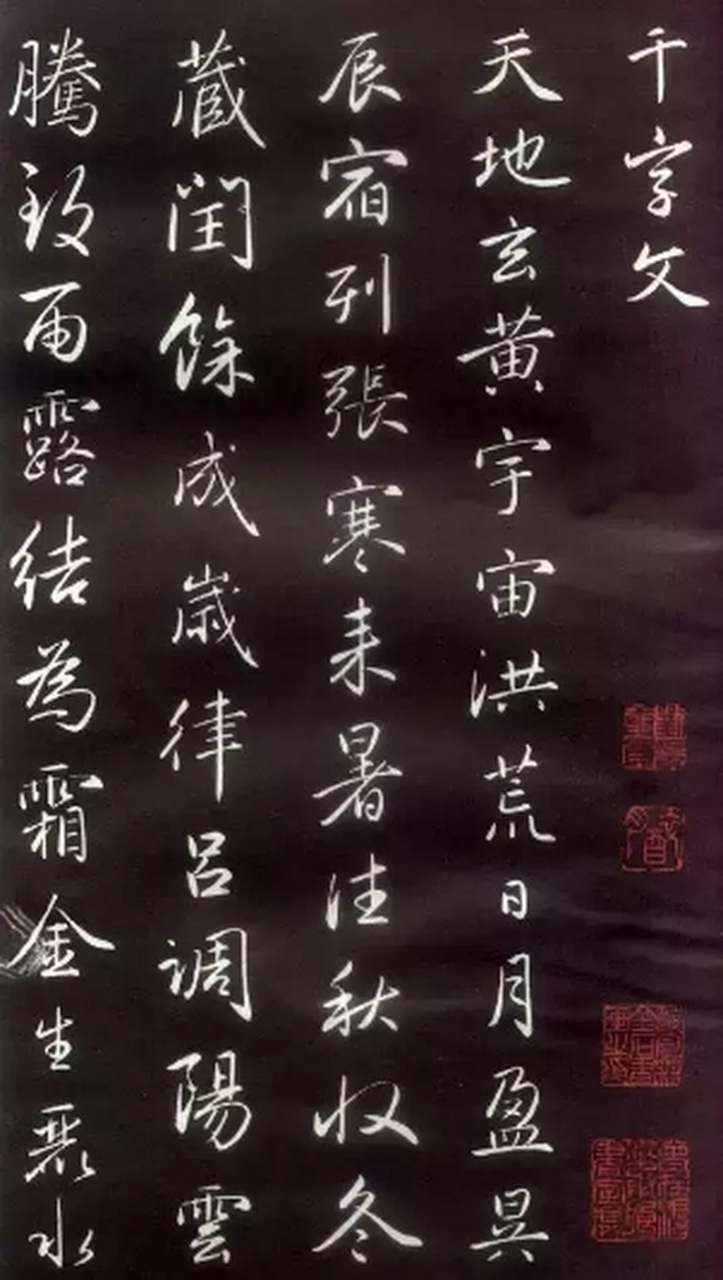 千字文
天地玄黄宇宙洪荒日月盈昃
辰宿列張寒来暑往秋收冬
蔵閏餘成歲律吕調陽雲
騰致雨露結為霜金生麗水